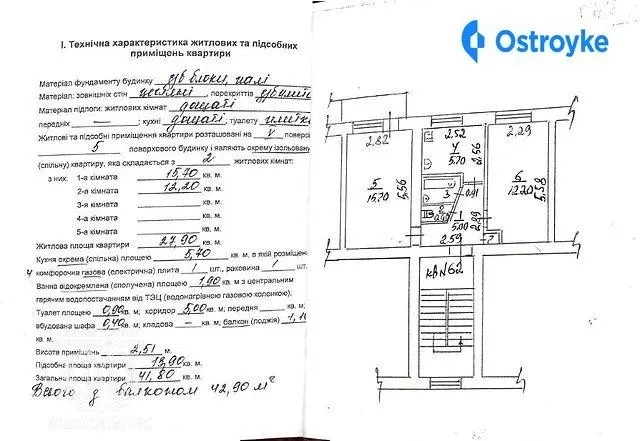 Ostroyke
І. Технічна характеристика житлових та підсобних
приміщень квартири
Матеріал фундаменту будинку з/б блоки, палі
Матеріал: зовнішніх стін цегляні, перекриттів з/б плити
Матеріал підлоги: житлових кімнат дощаті
передніх —; кухні дощаті; туалету плитка
Житлові та підсобні приміщення квартири розташовані на V поверсі
5 поверхового будинку і являють окрему ізольовану
(спільну) квартиру, яка складається з 2 житлових кімнат:
з них: 1-а кімната 15,70 кв. м.
2-а кімната 12,20 кв. м.
3-я кімната кв. м.
4-а кімната кв. м.
5-а кімната кв. м.
Житлова площа квартири 27,90 кв. м.
Кухня окрема (спільна) площею 5,70 кв. м, в якій розміщена
4 комфорочна газова (електрична) плита 1 шт., раковина 1 шт.
Ванна відокремлена (сполучена) площею 1,90 кв. м з центральним
гарячим водопостачанням від ТЭЦ (водонагрівною газовою колонкою).
Туалет площею 0,90 кв. м; коридор 5,00 кв. м; передня кв. м;
вбудована шафа 0,40 кв. м; кладова — кв. м; балкон (лоджія) 1,10
кв. м.
Висота приміщень 2,51 м.
Підсобна площа квартири 13,90 кв. м.
Загальна площа квартири 41,80 кв. м.
Всього з балконом 42,90 м²
2,82
2,52
2,29
4
5.70
2.56
5
15.70
5,56
6
12.20
5,58
3
0.41
2
0.90
1
5.00
2.59
7
кв N62